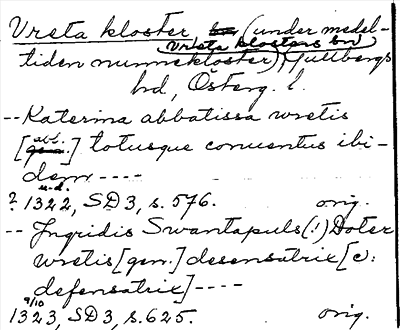 Vreta kloster (under medel-
Vreta klosters sn
tiden nunnekloster), Gullbergs
hd, Österg. l.
-- Katerina abbatissa wretis
[abl.] totusque conuentus ibi-
dem ----
u.d.
? 1322, SD 3, s. 576. orig.
-- Ingridis Swantapuls (!) Doter
wretis [gen.] desensatrix [ɔ:
defensatrix] ----
9/10
1323, SD 3, s. 625. orig.